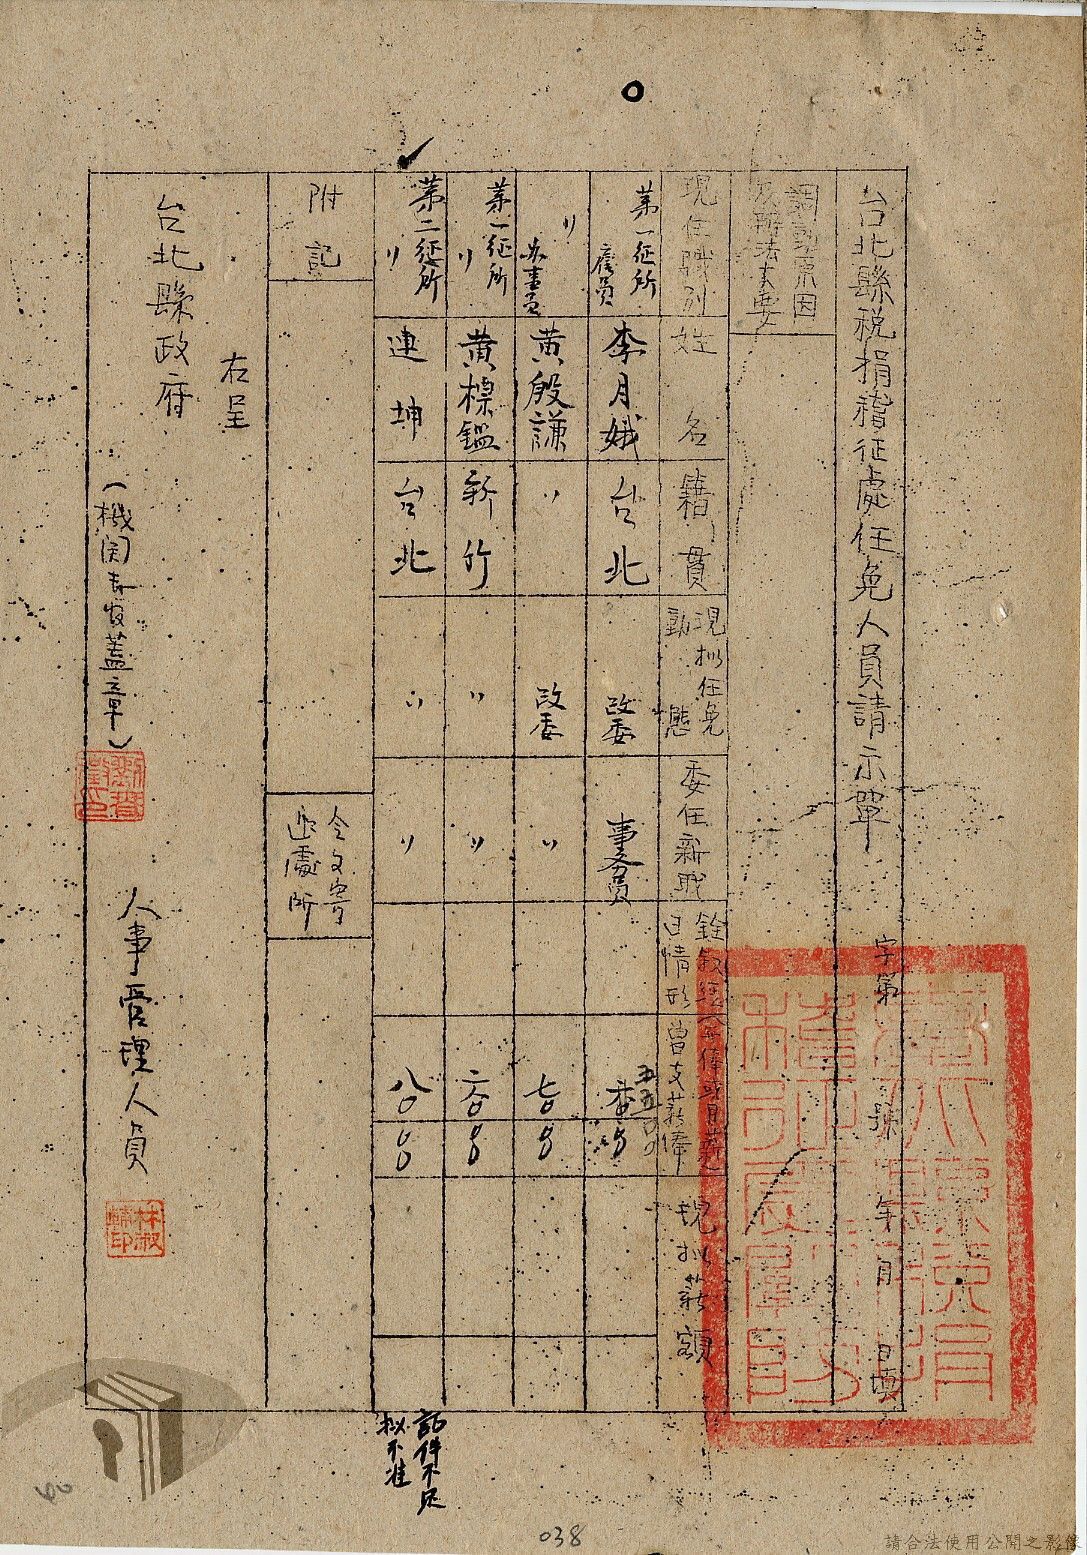 台北縣稅捐稽征處任免人員請示單
字第 號 年 月 日填
調動原因
及辦法主要
現任職別
姓名
籍貫
現拟任免
動態
委任新职
銓敘
情形
曾支薪俸
現拟薪額
第一征所
雇員
李月娥
台北
改委
事务員
五五
〃
办事員
黃殷謙
〃
改委
〃
第一征所
〃
黃標鑑
新竹
〃
〃
第二征所
〃
連坤
台北
〃
〃
八〇
証件不足
拟不准
附記
令文寄
达處所
右呈
台北縣政府
(機関長官蓋章)
人事管理人員
林淑
印
038
請合法使用公開之影像